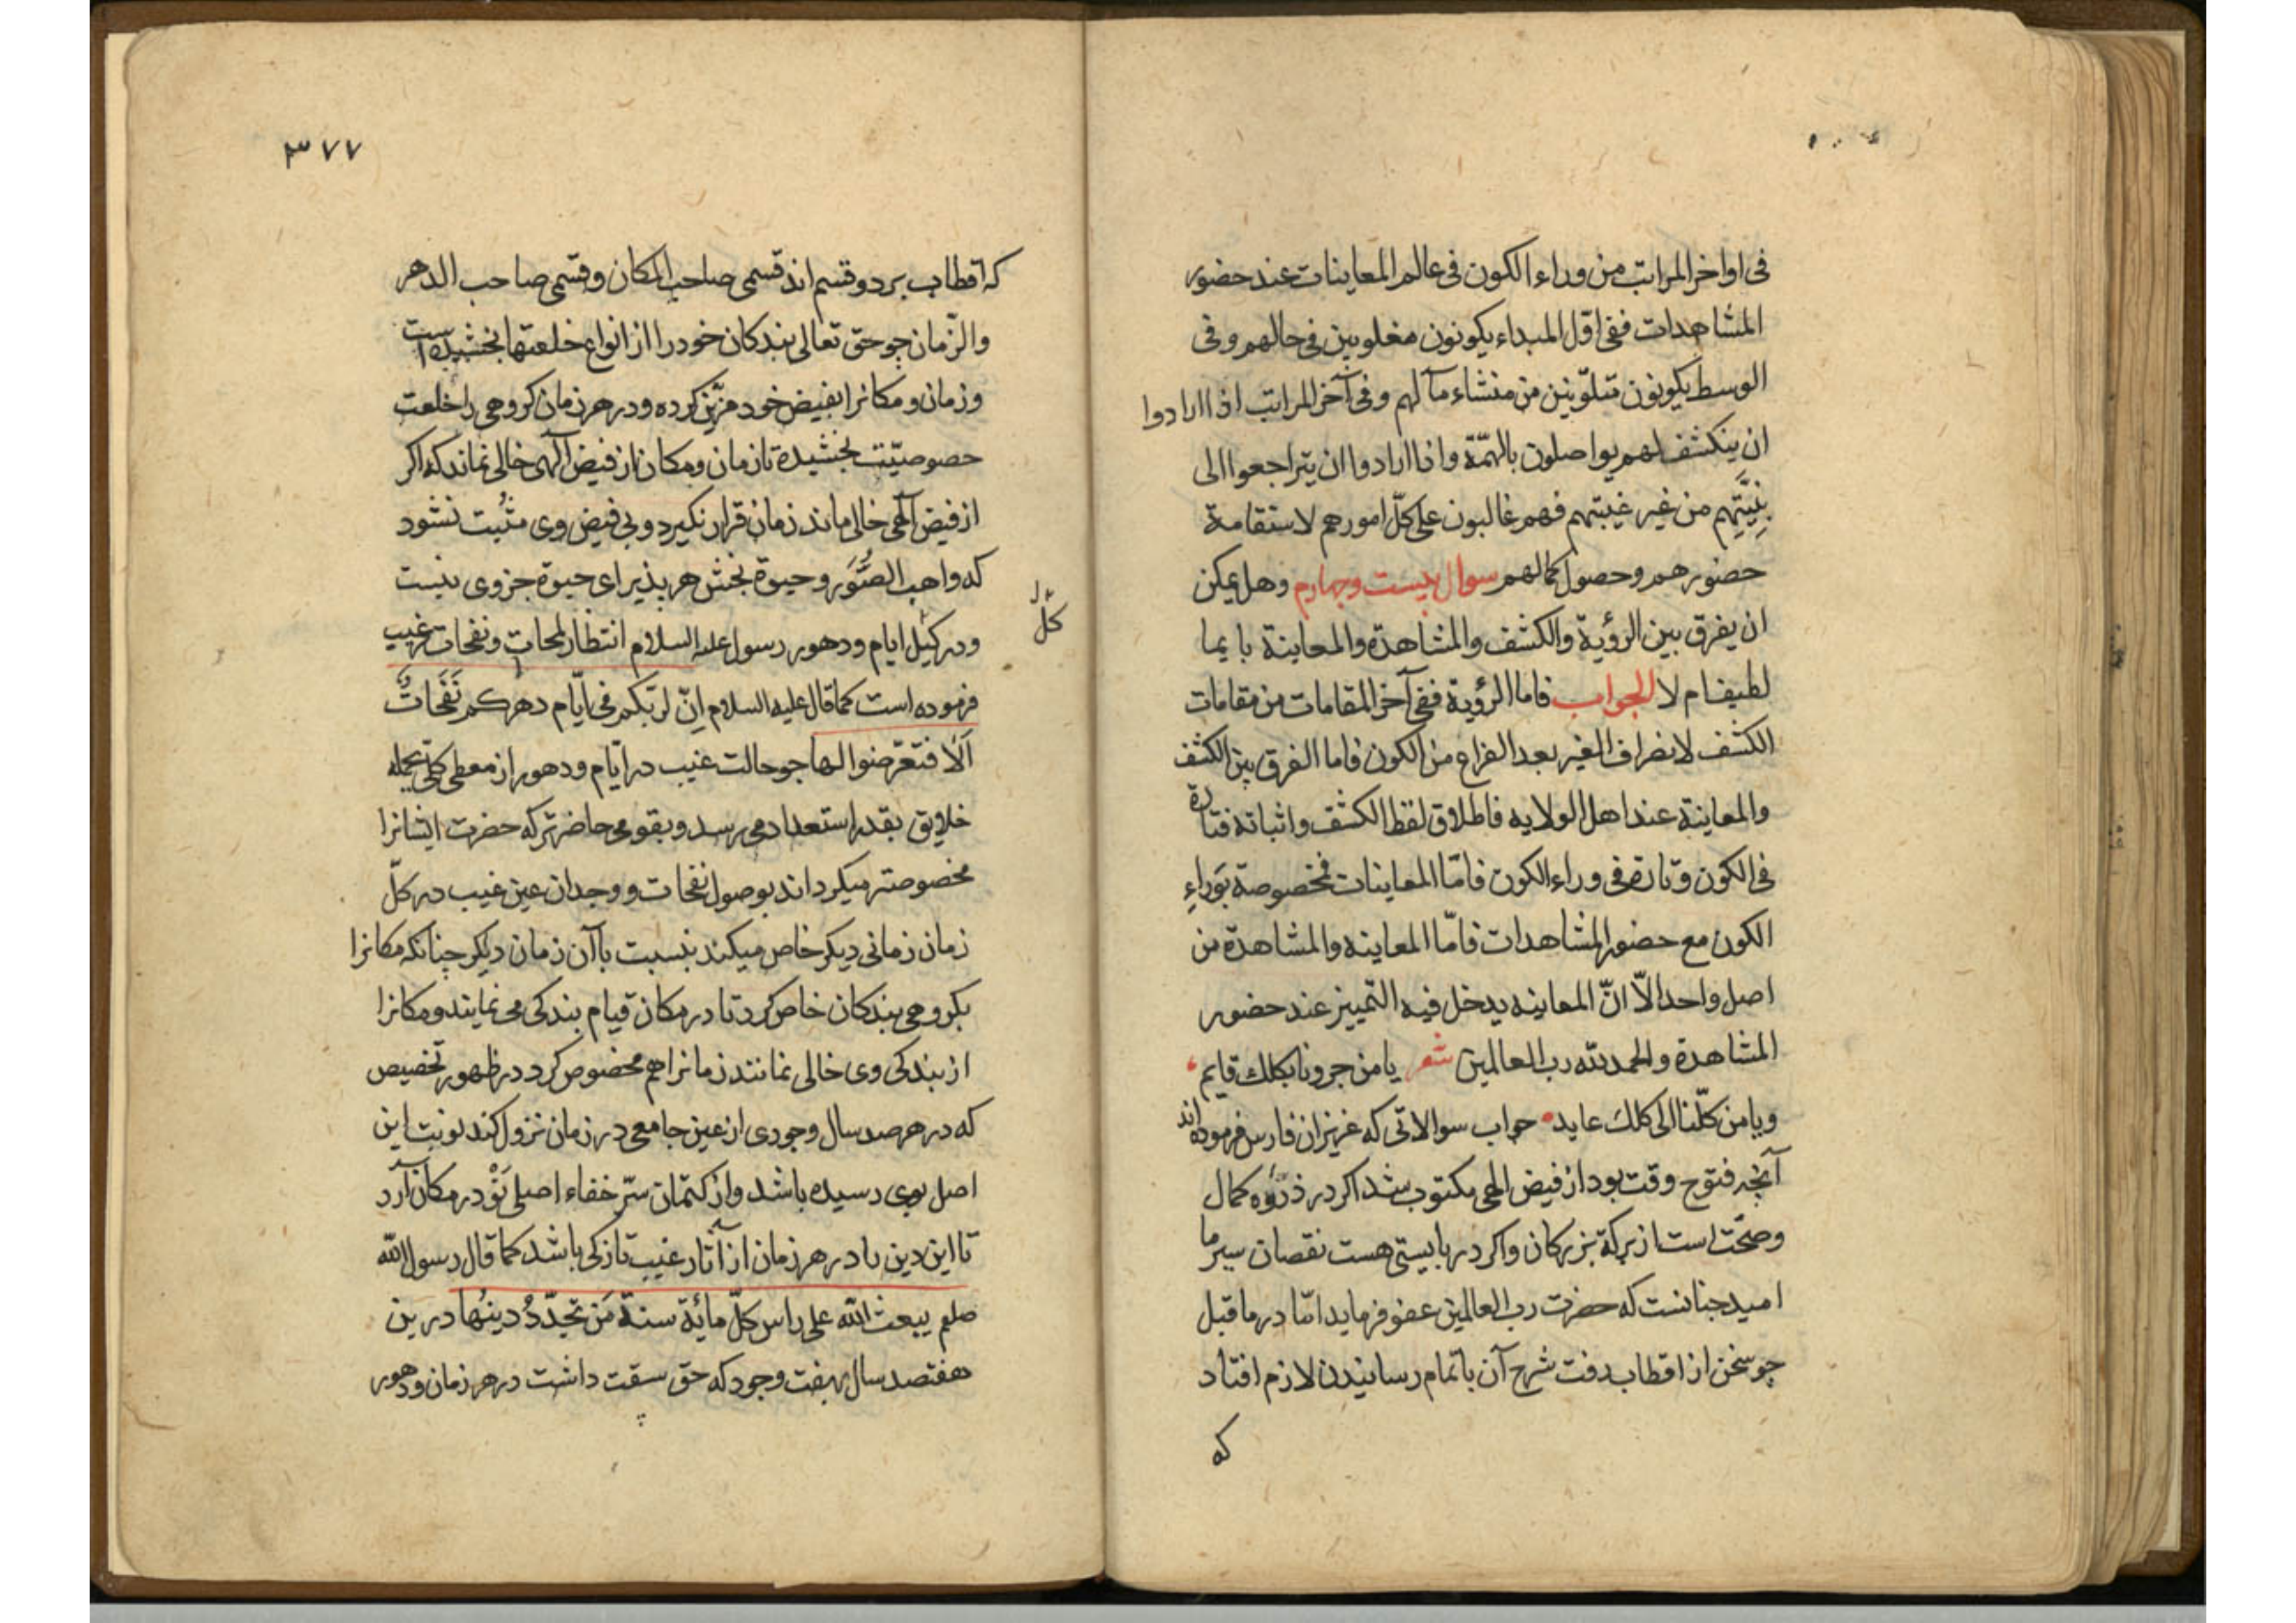 فی اواخر المراتب من وراء الکون فی عالم المعاینات عند حضور
المشاهدات ففی اوّل المبداء یکونون مغلوبین فی حالهم وفی
الوسط یکونون متلوّنین من منشاء مآلهم وفی آخر المراتب اذا ارادوا
ان ینکشف لهم یواصلون بالهمّة واذا ارادوا ان یتراجعوا الی
من غیر غیبتهم فهم غالبون علی کلّ امورهم لاستقامة
حضورهم وحصول کمالهم سوال بیست وچهارم وهل یمکن
ان یفرق بین الرؤیة والکشف والمشاهدة والمعاینة بایما
لطیف ام لا الجواب فاما الرؤیة ففی آخر المقامات من مقامات
الکشف لانصراف الغیر بعد الفراغ من الکون فاما الفرق بین الکشف
والمعاینة عند اهل الولایه فاطلاق لفظ الکشف واثباته فتارة
فی الکون وتارة فی وراء الکون فامّا المعاینات فمخصوصة بوراءِ
الکون مع حضور المشاهدات فامّا المعاینه والمشاهدة من
اصل واحد الّا انّ المعاینه یدخل فیه التمییز عند حضور
المشاهدة والحمدلله رب العالمین شعر یا من جرونا بکلک قایم
ویا من کلّنا الی کلک عاید جواب سوالاتی که عزیزان فارس فرموده اند
آنچه فتوح وقت بود از فیض الهی مکتوب شد اکر در ذروه کمال
وصحّت است از برکة بزرکان واکر در بایستی هست نقصان سیر ما
امید جنانست که حضرت رب العالمین عفو فرماید امّا در ما قبل
جو سخن از اقطاب رفت شرح آن باتمام رسانیدن لازم افتاد
که
۳۷۷
که اقطاب بر دو قسم اند قسمی صاحب المکان وقسمی صاحب الدهر
والزّمان جو حق تعالی بندکان خود را از انواع خلعتها بخشیده است
وزمان ومکانرا بفیض خود مزیّن کرده ودر هر زمان کروهی را خلعت
حصوصیّت بخشیده تا زمان ومکان از فیض الهی خالی نماند که اکر
از فیض الهی خالی ماند زمان قرار نکیرد وبی فیض وی مثبت نشود
که واهب الصُّوَر وحیوة بخش هر پذیرای حیوة جز وی نیست
ودر کیل ایام ودهور رسول علیه السلام انتظار لمحات ونفحات غیب
کل
فرموده است کما قال علیه السلام اِنّ لربّکم فی ایّام دهرکم نَفَحاتٌ
اَلَا فتعرّضوا لها جو حالت غیب در ایّام ودهور از معطی کلّی بجمله
خلایق بقدر استعداد می رسد وبقومی حاضرتر که حضرت ایشانرا
مخصوصتر میکرداند بوصول نفحات ووجدان عین غیب در کلّ
زمان زمانی دیکر خاص میکند بنسبت باآن زمان دیکر چنانکه مکانرا
بکروهی بندکان خاص کرد تا در مکان قیام بندکی می نمایند ومکانرا
از بندکی وی خالی نمانند زمانرا هم مخصوص کرد در ظهور تخصیص
که در هر صد سال وجودی از عین جامعی در زمان نزول کند نوبت این
اصل بوی رسیده باشد واز کتمان سرّ خفاء اصلی در مکان آرد
تا این دین را در هر زمان از آثار غیب تازکی باشد کما قال رسول الله
صلعم یبعث الله علی راس کلّ مائة سنة مَن تجدّدُ دینَها درین
هفتصد سال بهفت وجود که حق سبقت داشت در هر زمان ودهور